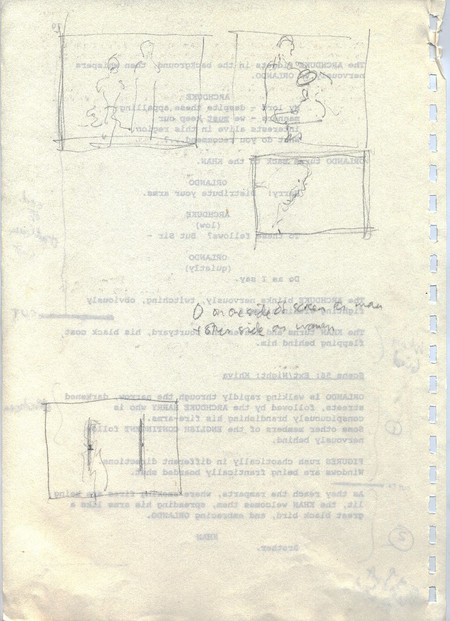 The ARCHDUKE [blinks] in the background, then whispers
nervously to ORLANDO.
ARCHDUKE
My lord - despite these appalling
manners - we must keep our
interests alive in this region.
What do you recommend?
ORLANDO turns back to the KHAN.
ORLANDO
Harry! Distribute your arms.
ARCHDUKE
(low)
To these fellows? But Sir -
ORLANDO
(quietly)
Do as I say.
The ARCHDUKE blinks nervously, twitching, obviously
O on one side of screen as man
+ other side as woman
The KHAN turns and courtyard, his black coat
flapping behind him.
Scene 34: Ext/Night: Khiva
ORLANDO is walking rapidly through the narrow darkened
streets, followed by the ARCHDUKE HARRY who is
conspicuously brandishing his fire-arm.
Some other members of the ENGLISH CONTINGENT follow
nervously behind.
FIGURES rush chaotically in different directions.
Windows are being frantically boarded shut.
As they reach the ramparts, where fires are being
lit, the KHAN welcomes them, spreading his arms like a
great black bird, and embracing ORLANDO.
KHAN
Brother.